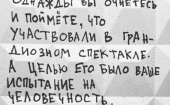 ОДНАЖДЫ ВЫ ОЧНЁТЕСЬ
И ПОЙМЁТЕ, ЧТО
УЧАСТВОВАЛИ В ГРАН-
ДИОЗНОМ СПЕКТАКЛЕ.
А ЦЕЛЬЮ ЕГО БЫЛО ВАШЕ
ИСПЫТАНИЕ НА
ЧЕЛОВЕЧНОСТЬ.